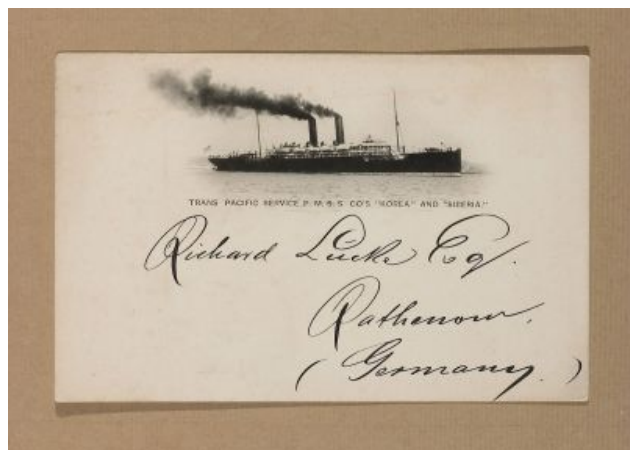 TRANS PACIFIC SERVICE P. M. S. S. CO'S "KOREA" AND "SIBERIA"
Richard Lücke Esq.
Rathenow.
(Germany.)